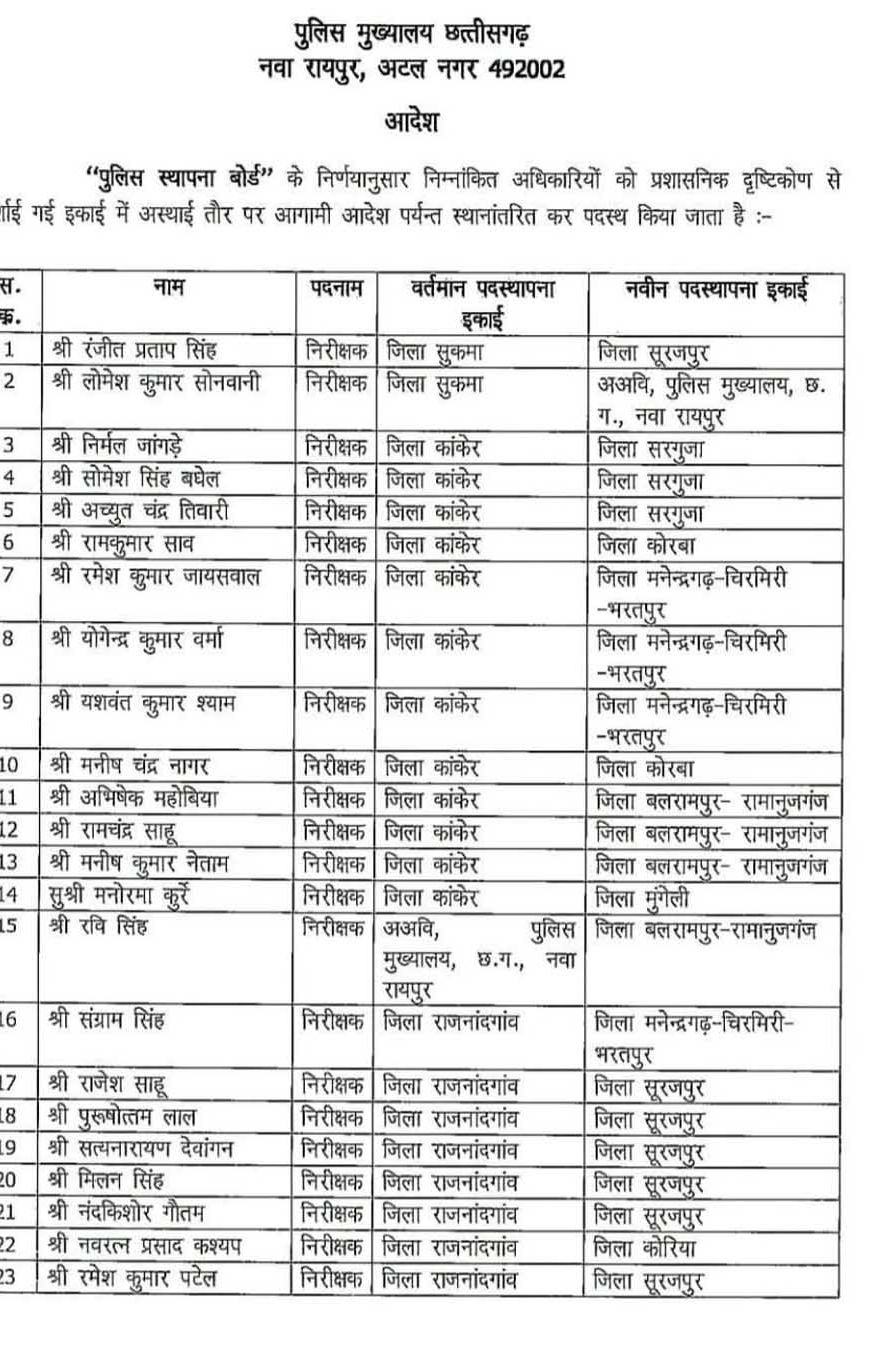 पुलिस मुख्यालय छत्तीसगढ़
नवा रायपुर, अटल नगर 492002
आदेश
“पुलिस स्थापना बोर्ड” के निर्णयानुसार निम्नांकित अधिकारियों को प्रशासनिक दृष्टिकोण से
गई इकाई में अस्थाई तौर पर आगामी आदेश पर्यन्त स्थानांतरित कर पदस्थ किया जाता है :-
स. क्र. नाम पदनाम वर्तमान पदस्थापना इकाई नवीन पदस्थापना इकाई
1 श्री रंजीत प्रताप सिंह निरीक्षक जिला सुकमा जिला सूरजपुर
2 श्री लोमेश कुमार सोनवानी निरीक्षक जिला सुकमा अअवि, पुलिस मुख्यालय, छ.
ग., नवा रायपुर
3 श्री निर्मल जांगड़े निरीक्षक जिला कांकेर जिला सरगुजा
4 श्री सोमेश सिंह बघेल निरीक्षक जिला कांकेर जिला सरगुजा
5 श्री अच्युत चंद्र तिवारी निरीक्षक जिला कांकेर जिला सरगुजा
6 श्री रामकुमार साव निरीक्षक जिला कांकेर जिला कोरबा
7 श्री रमेश कुमार जायसवाल निरीक्षक जिला कांकेर जिला मनेन्द्रगढ़-चिरमिरी
-भरतपुर
8 श्री योगेन्द्र कुमार वर्मा निरीक्षक जिला कांकेर जिला मनेन्द्रगढ़-चिरमिरी
-भरतपुर
9 श्री यशवंत कुमार श्याम निरीक्षक जिला कांकेर जिला मनेन्द्रगढ़-चिरमिरी
-भरतपुर
10 श्री मनीष चंद्र नागर निरीक्षक जिला कांकेर जिला कोरबा
11 श्री अभिषेक महोबिया निरीक्षक जिला कांकेर जिला बलरामपुर- रामानुजगंज
12 श्री रामचंद्र साहू निरीक्षक जिला कांकेर जिला बलरामपुर- रामानुजगंज
13 श्री मनीष कुमार नेताम निरीक्षक जिला कांकेर जिला बलरामपुर- रामानुजगंज
14 सुश्री मनोरमा कुर्रे निरीक्षक जिला कांकेर जिला मुंगेली
15 श्री रवि सिंह निरीक्षक अअवि, पुलिस जिला बलरामपुर-रामानुजगंज
मुख्यालय, छ.ग., नवा
रायपुर
16 श्री संग्राम सिंह निरीक्षक जिला राजनांदगांव जिला मनेन्द्रगढ़-चिरमिरी-
भरतपुर
17 श्री राजेश साहू निरीक्षक जिला राजनांदगांव जिला सूरजपुर
18 श्री पुरूषोत्तम लाल निरीक्षक जिला राजनांदगांव जिला सूरजपुर
19 श्री सत्यनारायण देवांगन निरीक्षक जिला राजनांदगांव जिला सूरजपुर
20 श्री मिलन सिंह निरीक्षक जिला राजनांदगांव जिला सूरजपुर
21 श्री नंदकिशोर गौतम निरीक्षक जिला राजनांदगांव जिला सूरजपुर
22 श्री नवरत्न प्रसाद कश्यप निरीक्षक जिला राजनांदगांव जिला कोरिया
23 श्री रमेश कुमार पटेल निरीक्षक जिला राजनांदगांव जिला सूरजपुर